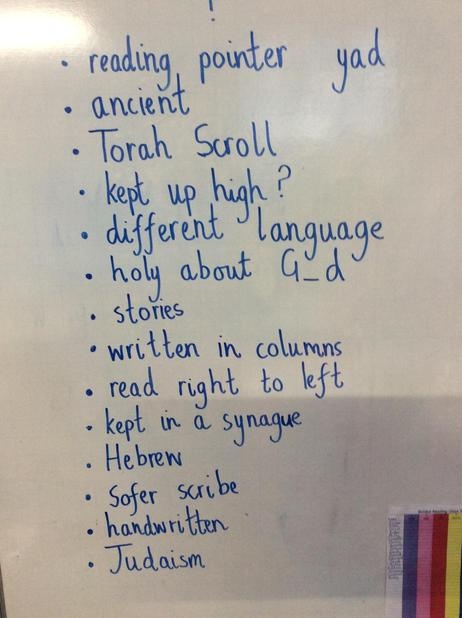 • reading pointer yad
• ancient
• Torah Scroll
• kept up high?
• different language
• holy about G_d
• stories
• written in columns
• read right to left
• kept in a synague
• Hebrew
• Sofer scribe
• handwritten
• Judaism